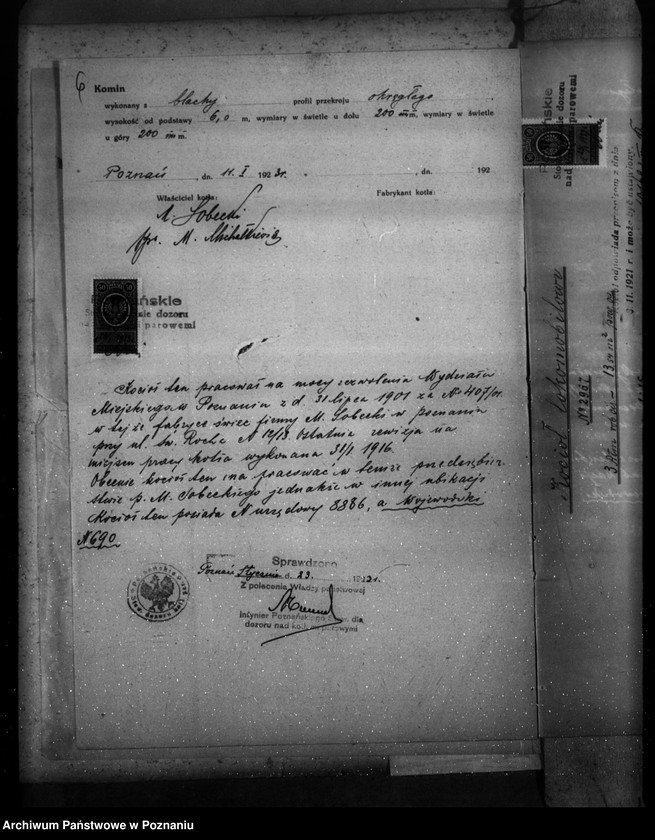 6
Komin
wykonany z blachy profil przekroju okrągłego
wysokość od podstawy 6,0 m, wymiary w świetle u dołu 200 m̄m̄. wymiary w świetle
u góry 200 m̄m̄.
Poznań, dn. 11. I 1923 r. , dn. 192
Właściciel kotła: Fabrykant kotła:
M. Sobecki
M. Michałkiewicz
Kocioł ten pracował na mocy zezwolenia Wydziału
Miejskiego w Poznaniu z d. 31 lipca 1901 za № 407/01.
w tej że fabryce świec firmy M. Sobecki w Poznaniu
przy ul. św. Rocha № 12/13. Ostatnia rewizja na
miejscu pracy kotła wykonana 31/1 1916.
Obecnie kocioł ten ma pracować w temże przedsiębior
stwie p. M. Sobeckiego jednakże w innej ubikacji
Kocioł ten posiada N urzędowy 8886, a Wojewódzki
№ 690.
Sprawdzono
Poznań Stycznia d. 23. r.
Z polecenia Władzy państwowej
Inżynier Poznańskiego Stow. dla
dozoru nad kotłami parowymi
Kocioł lokomobilowy
№ 2967.
odpowiada przepisom z dnia
II. 1921 r. i może być ustawiony.
Archiwum Państwowe w Poznaniu